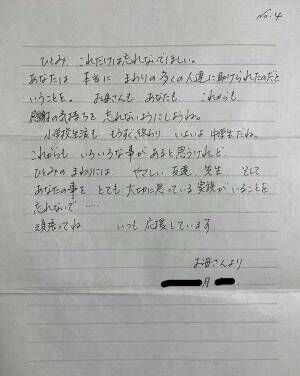 No.4
ひとみ これだけは忘れないでほしい。
あなたは 本当に まわりの多くの人達に助けられたのだと
いうことを。 お母さんも あなたも これからも
感謝の気持ちを 忘れないようにしようね。
小学校生活も もうすぐ終わり いよいよ 中学生だね。
これからも いろいろな事が あると思うけれど
ひとみのまわりには やさしい 友達 先生 そして
あなたの事を とても 大切に思っている 家族がいることを
忘れないで‥‥‥
頑張ってね いつも 応援しています。
お母さんより
月